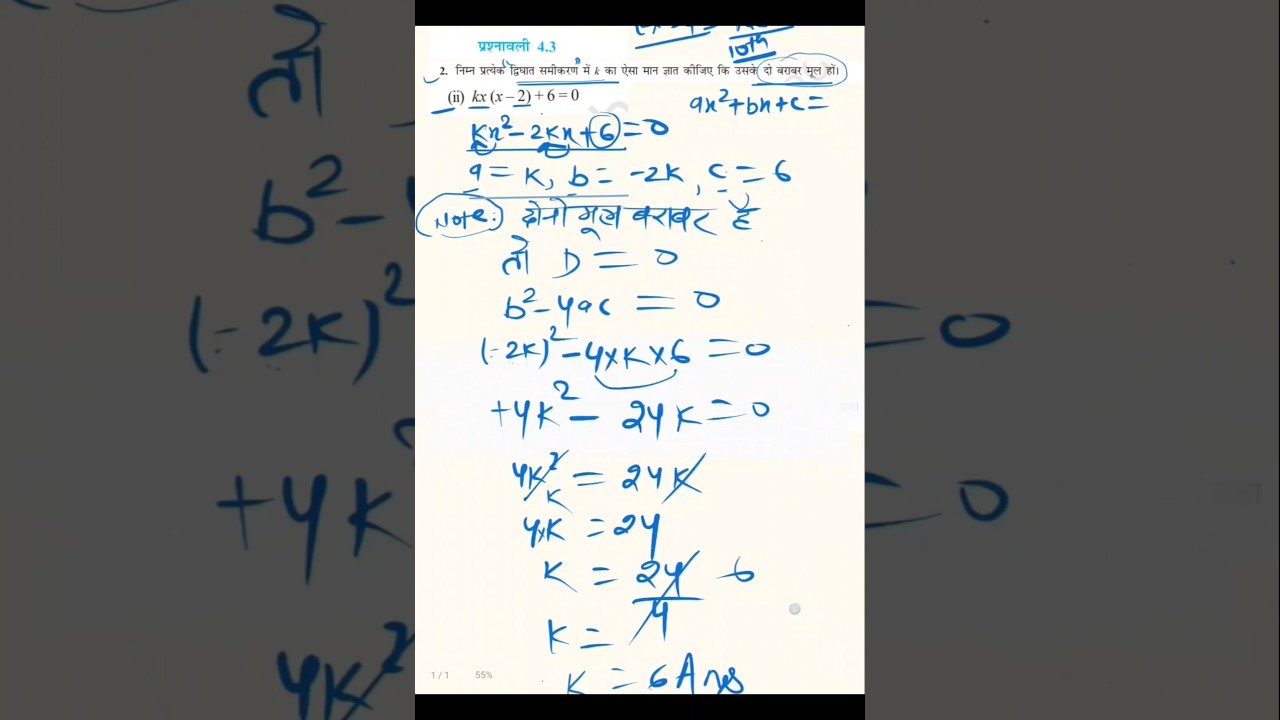 प्रश्नावली 4.3
2. निम्न प्रत्येक द्विघात समीकरण में k का ऐसा मान ज्ञात कीजिए कि उसके दो बराबर मूल हों।
(ii) kx (x – 2) + 6 = 0
ax²+bx+c=
Kx²-2Kx+6=0
a=K, b=-2K, C=6
Note: दोनो मूल बराबर है
तो D=0
b²-4ac=0
(-2K)²-4xKx6=0
+4K²-24K=0
4K²=24K
K
4xK=24
K=24 6
4
K=
K=6Ans
1/1 55%
तो
b²-
(-2K)² =0
+4K =0
4K²